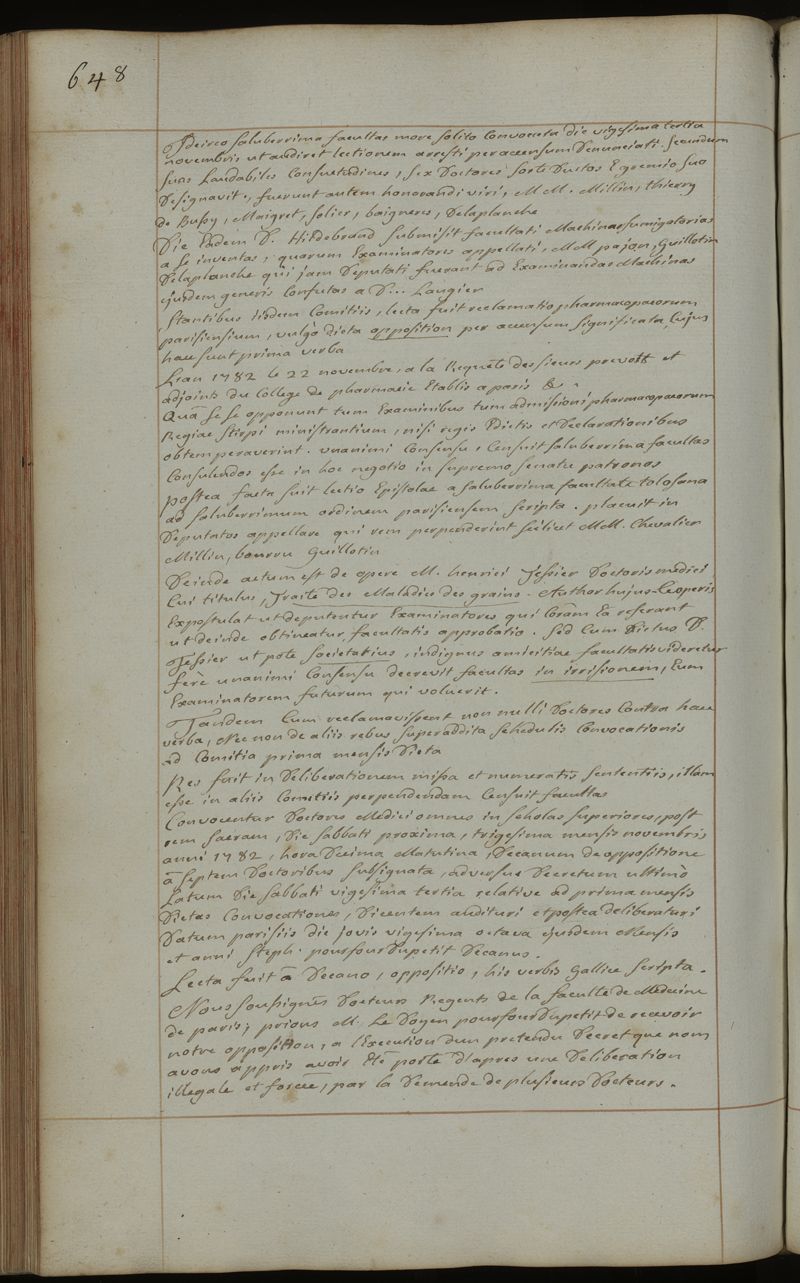 648
Idcirco saluberrima facultas more solito Convocata die vigesima tertia
novembris ut audiret lectionem arresti per accensum Denunciati. Secundum
suas Laudabiles Consuetudines, sex Doctores sorte Ductos E gremio suo
Designavit, fuerunt autem honorandi viri, M M. Millin, thierry
de Bussy, Maigret, solier, baigneres, Delaplanche
Die Eadem D. Hildebrand submisit facultati Machinas fumigatorias
a se inventas, quarum Examinatores appellati, MM pajon, Guillotin
Delaplanche qui jam Deputati fuerant ad Examinandas Machinas
ejusdem generis Confutas a D... Laugier
Stantibus iisdem Comitiis, lecta fuit reclamatio pharmacopaeorum
parisiensium, vulgò dicta opposition per accensum significata, Cujus
haec sunt prima verba
Lan 1782 le 22 novembre, a la Requete des sieurs prevots et
adjoints du College de pharmacie Etablis a paris &
Quâ se se opponunt tum Examinibus tum admissioni pharmacopaeorum
Regiae stirpi ministrantium, nisi regis Edictis et Declarationibus
obtemperaverint. unanimi Consensu, Censuit saluberrima facultas
Consulendos esse in hoc negotio in supremo senatu patronos
postea facta fuit lectio Epistolae a saluberrima facultate tolosana
ad saluberrimum ordinem parisiensem scripta. placuit in
Deputatos appellare qui rem perpenderint scilicet MM. Chevalier
Millin, bourru Guillotin
Deinde actum est de opere M. henrici Tessier Doctoris medici
Cui titulus, Traité des Maladies des grains. Author hujus-Ce operis
Expostulat ut deputentur Examinatores qui Coram Ea referant
ut deinde obtineatur facultatis approbatio. sed Cum Dictus D.
Tessier ut pote societatius, indignus amicitiae facultatis videretur
ferè unanimi Consensu decrevit facultas in irrisionem, Eum
Examinatorem futurum qui voluerit.
Tandem Cum reclamavissent non nulli Doctores Contra haec
verba, Nec non de aliis rebus superaddita schedulis Convocationis
ad Comitia prima mensis Dicta
Res fuit in Deliberationem missa et numeratis sententiis, illam
esse in aliis Comitiis perpendendam Censuit facultas
Convocentur Doctores Medici omnes in scholas superiores, post
rem sacram, Die sabbati proxima, trigesima mensis novembris
anni 1782, hora Decima Matutina, Decanum de oppositione
à septem Doctoribus subsignata, adversus Decretum ultimò
Latum Die sabbati vigesima tertia relative ad prima mensis
Dictas Convocationes, Dicentem audituri et postea deliberaturi
Datum parisiis die jovis vigesima octava ejusdem Mensis
et anni Steph. pourfour Dupetit Decanus.
Lecta fuit â Decano, oppositio, his verbis Gallice scripta.
Nous soussignés Docteurs Regents de la faculté de Médecine
de paris; prions M. Le Doyen pourfour Dupetit de recevoir
notre opposition, a l'Execution d'un pretendu Decret que nous
avons appris avoir Eté porté d'apres une Deliberation
illegale et forcée, par la Demende de plusieurs Docteurs.